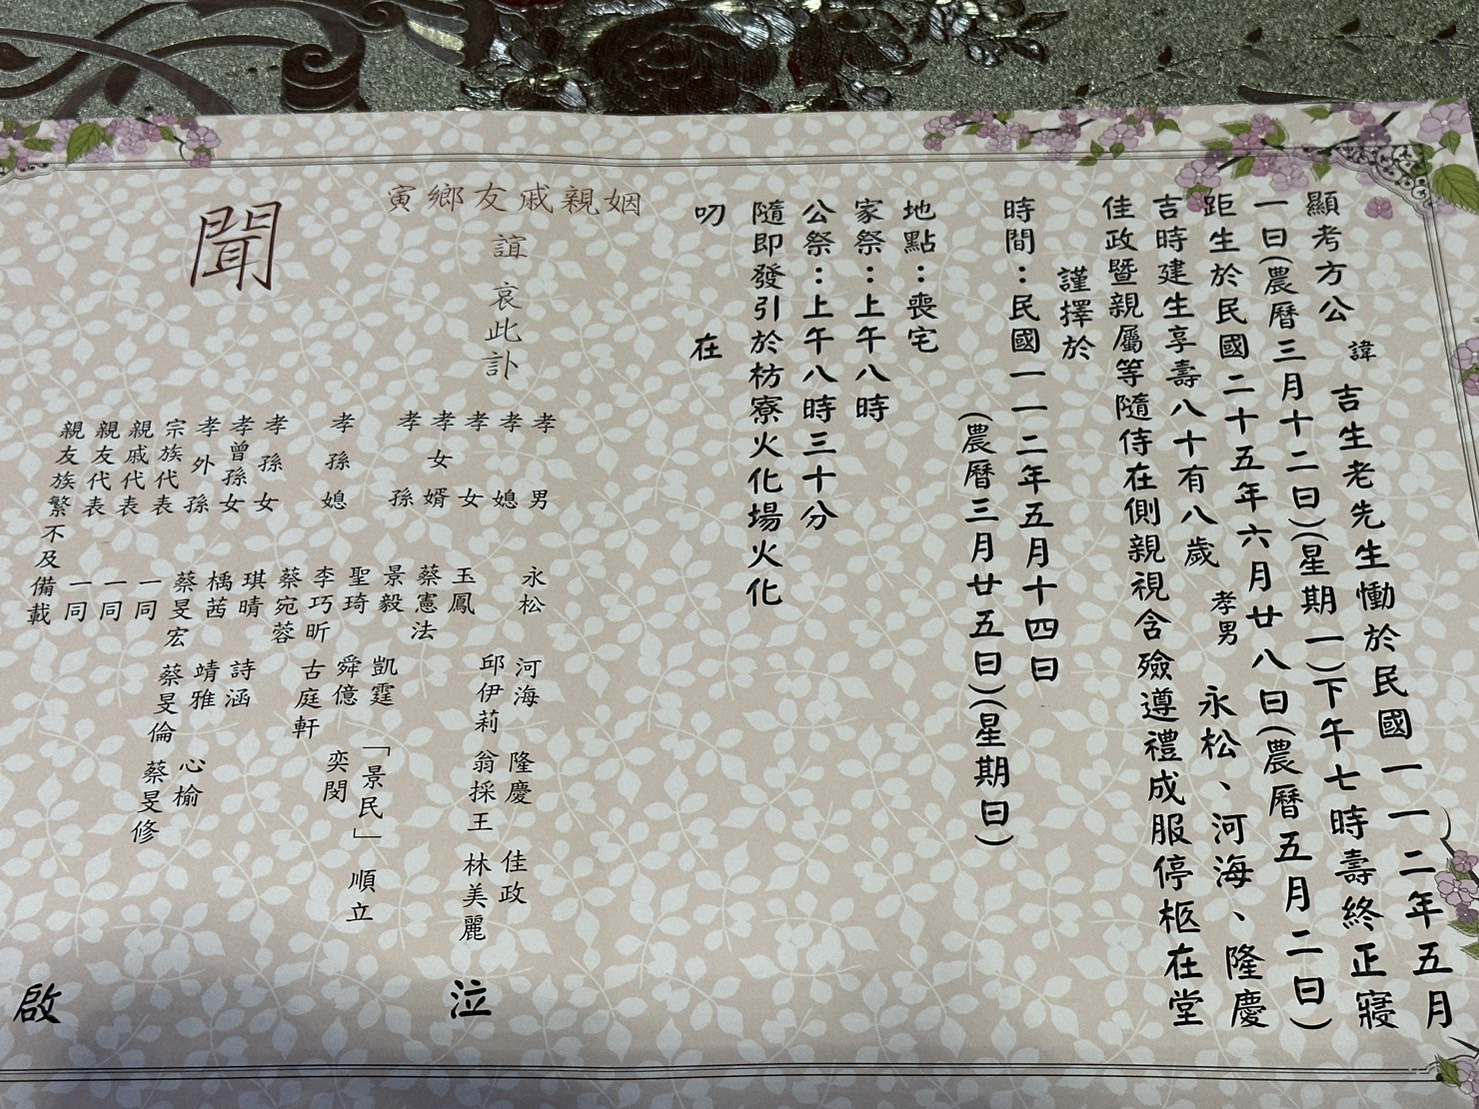 顯考方公 諱 吉生老先生慟於民國一一二年五月
一日(農曆三月十二日)(星期一)下午七時壽終正寢
距生於民國二十五年六月廿八日(農曆五月二日)
吉時建生享壽八十有八歲 孝男 永松、河海、隆慶
佳政暨親屬等隨侍在側親視含殮遵禮成服停柩在堂
謹擇於
時間：民國一一二年五月十四日
(農曆三月廿五日)(星期日)
地點：喪宅
家祭：上午八時
公祭：上午八時三十分
隨即發引於枋寮火化場火化
叨 在
寅鄉友戚親姻
誼 哀此訃
聞
孝男 永松 河海 隆慶 佳政
孝媳 邱伊莉 翁採王 林美麗
孝女 玉鳳
孝女婿 蔡憲法
孝孫 景毅 凱霆 「景民」 順立
聖琦 舜億 奕閔
孝孫媳 李巧昕 古庭軒
蔡宛蓉
孝孫女 琪晴 詩涵
孝曾孫女 楀茜 靖雅 心榆
孝外孫 蔡旻宏 蔡旻倫 蔡旻修
宗族代表 一同
親戚代表 一同
親友代表 一同
親友族繁不及備載
泣
啟